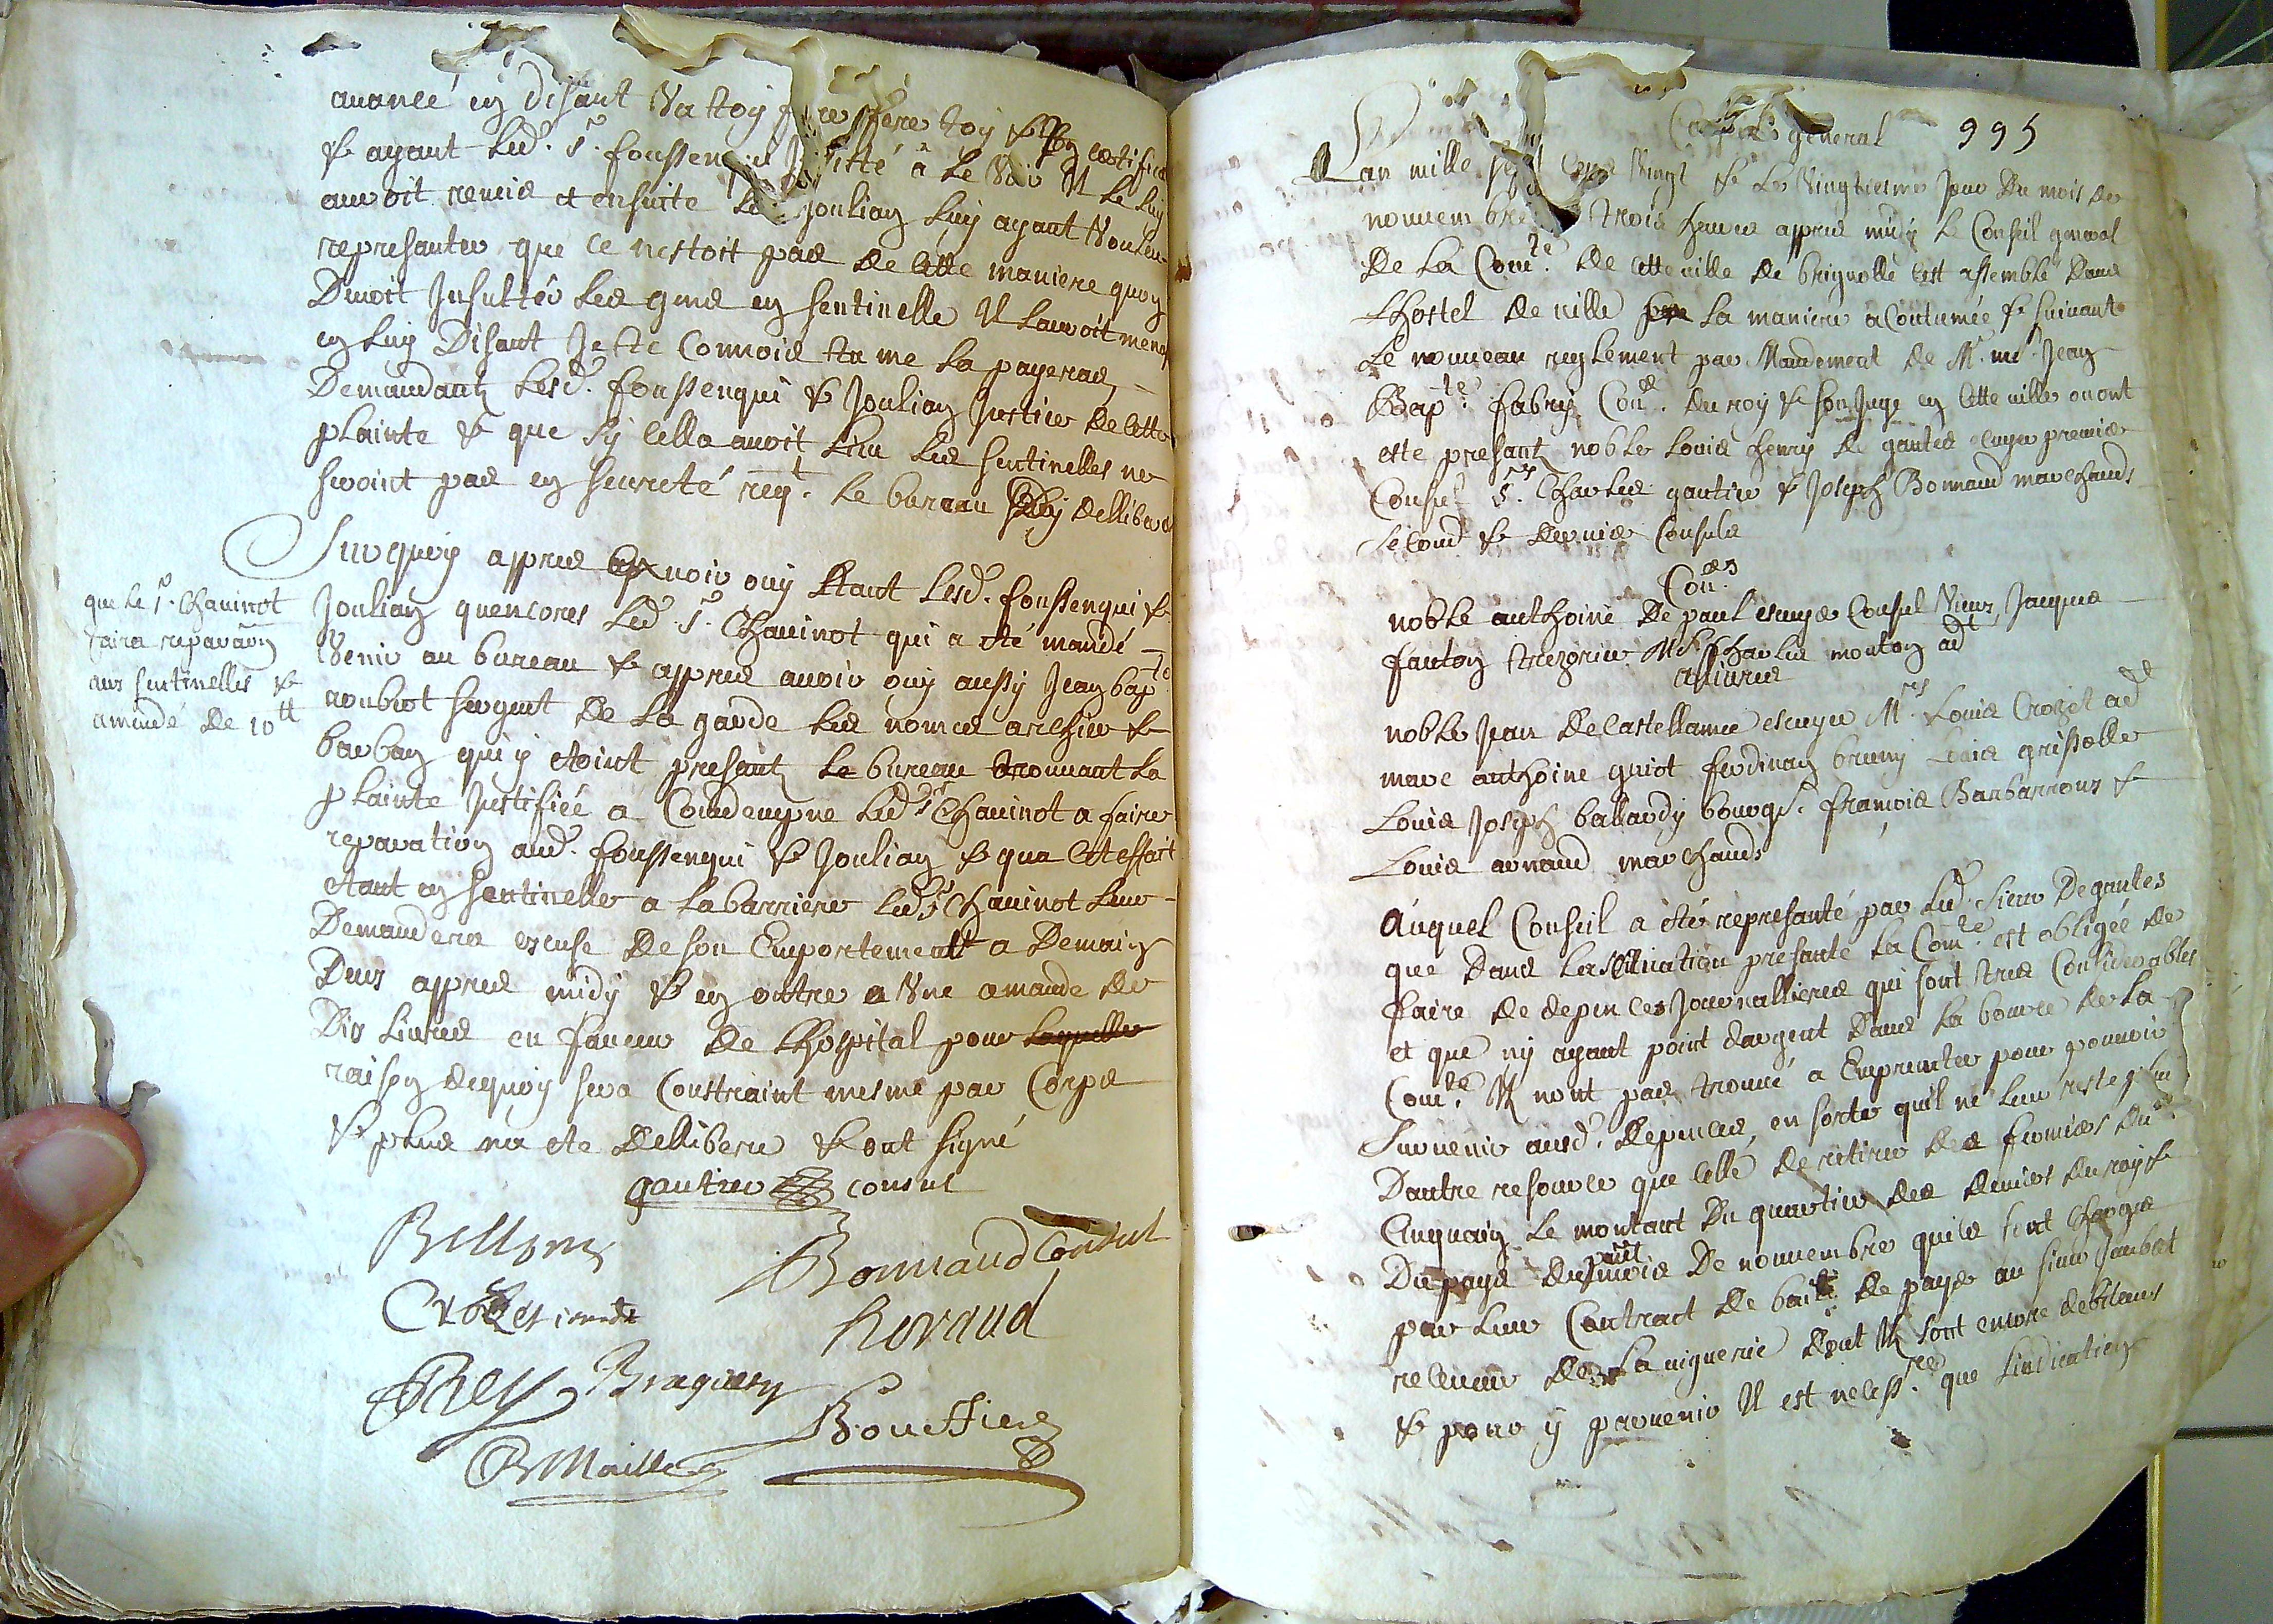 avancé en disant Va toy faire faire toy & son certificat
& ayant led. Sr. foussenqui Invitté a le Voir Il le luy
auroit remis et ensuite led. Joulian luy ayant Vouleu
representer que ce nestoit pas de cette maniere quon
Devoit Insultér les gens en sentinelle Il lauroit menassé
en luy Disant Je te Connois tu me la payeras,
Demandant lesd. foussenqui & Joulian Justice de cette
plainte & que sy cella avoit lieu les sentinelles ne
seroint pas en seureté reqt. le bureau dy delliberer
Surquoy appres avoir ouy tant lesd. foussenqui &
Joulian quencores led. Sr. Chauinot qui a eté mandé
Venir au bureau & appres avoir ouy aussy Jean bapte.
roubiot sergent de la garde les nommés archier &
barban qui y etoint presants le bureau trouvant la
plainte Justifiée a Condempne led. Sr. Chauinot a faire
reparation aud. foussenqui & Joulian & qua Cet effait
etant en sentinelle a la barriere led. Sr. Chauinot leur
Demandera excuse de son Emportement a Demain
Deux appres midy & en outre a Vne amande de
Dix Livres en faveur de Lhospital pour laquelle
raison dequoy sera Constraint mesme par Corps
& plus na ete delliberé & ont signé
que le Sr. Chauinot
faira reparaon
aux sentinelles &
amande de 10 tt
gautier consul
Bellon
Bonnaud Consul
Crozet
Roraud
Rey Braquety
Bouffier
B Maille
Conseil general 995
Lan mille sept Cens Vingt & le Vingtiesme Jour Du mois de
novembre trois heures appres midy le Conseil general
De la Comte. de cette ville de brignolle sest assemblé Dans
Lhostel de ville la maniere a Coutumée & suivant
Le nouveau reglement par Mandement de Mr. me. Jean
Bapte. fabry Coner. du roy & son Juge en cette ville ou ont
este presants noble Louis henry de gantes escuyer premier
Consul Srs. Charles gautier & Joseph Bonnaud marchands
second & dernier Consuls
Coners.
noble anthoine De paul escuyer Consul Vieux, Jacques
fanton trezorier Me Charles mouton adt
assieurés
noble Jean de Castellanne escuyer Mres. Louis Crozet adt
marc anthoine guiot ferdinan bruny Louis grisolle
Louis Joseph ballardy bourgs. francois Barbarroux &
Louis arnaud marchands
Auquel Conseil a été representé par led. sieur De gantes
que Dans la situation presante la Comte. est obligée de
faire de depences Journallieres qui sont tres Considerables
et que ny ayant point dargent Dans la bource de la
Comte. Ils nont pas trouvé a Emprunter pour pouvoir
survenir ausd. depences, en sorte quil ne leur reste plus
Dautre resource que celle de retirer des fermiers du
Enquain le montant du quartier des deniers du roy &
Du pays du puis mois De novembre quils sont chargés
par leur Contract de bail de payer au sieur Jaubert
receveur de la viguerie dont Ils sont encore debiteurs
& pour y parvenir Il est necessre. que Lindication